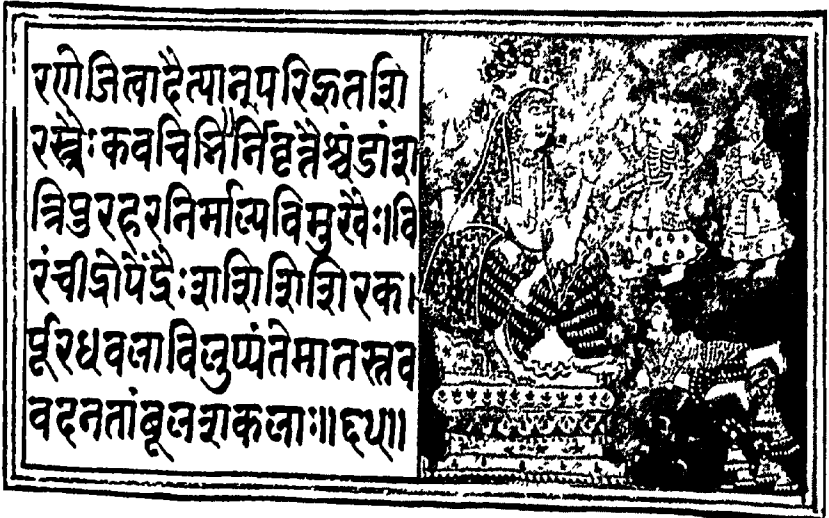 रणेजित्वादैत्यान्परिहृतशि
रस्त्रैःकवचिभिर्निवृत्तैश्चंडांश
त्रिपुरहरनिर्माल्यविमुखैः।वि
रंचींद्रोपेंद्रैःशशिशिशिरक।
र्पूरधवलाविलुप्यंतेमातस्तव
वदनतांबूलशकलाः॥६५॥